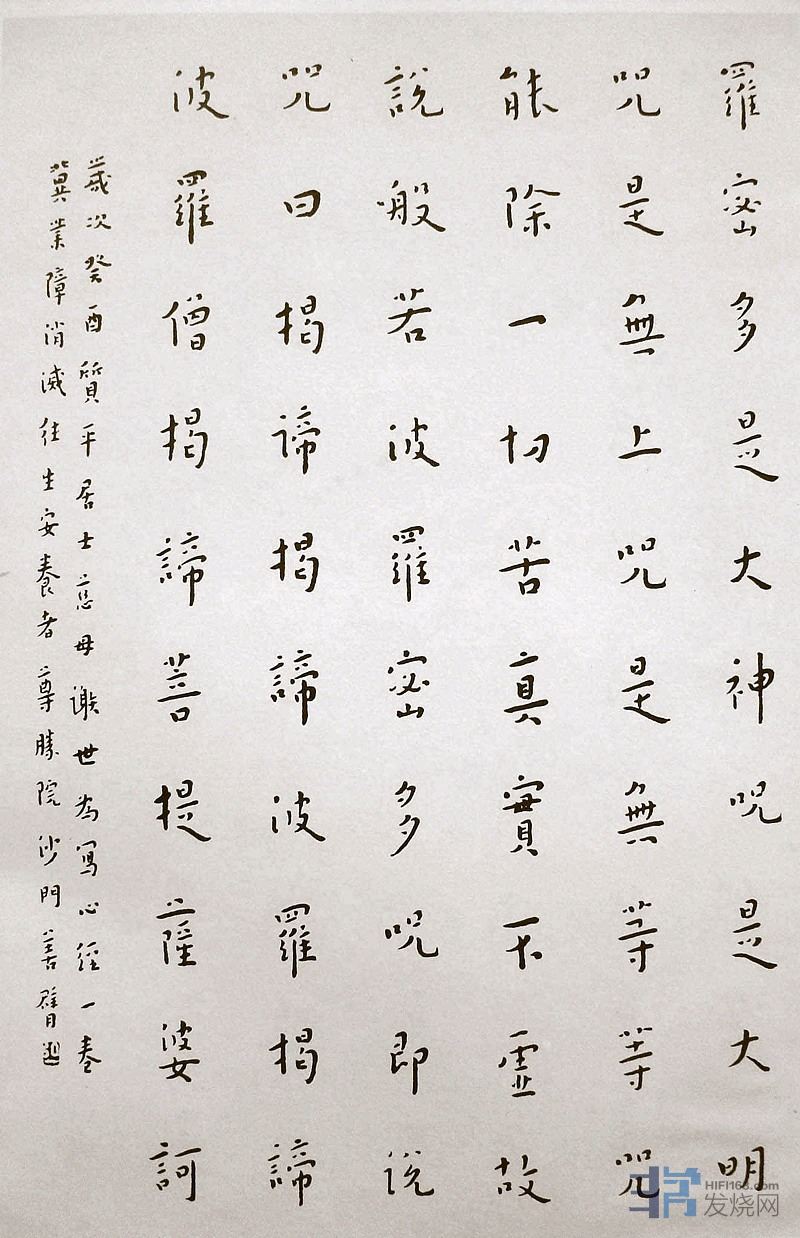 羅密多是大神呪是大明
呪是無上呪是無等等呪
能除一切苦真實不虛故
說般若波羅密多呪即说
呪曰揭諦揭諦波羅揭諦
波羅僧揭諦菩提薩婆訶
歲次癸酉質平居士慈母謝世為寫心經一卷
冀業障消滅往生安養者尊勝院沙門善臂
HIFI168.com
发烧网